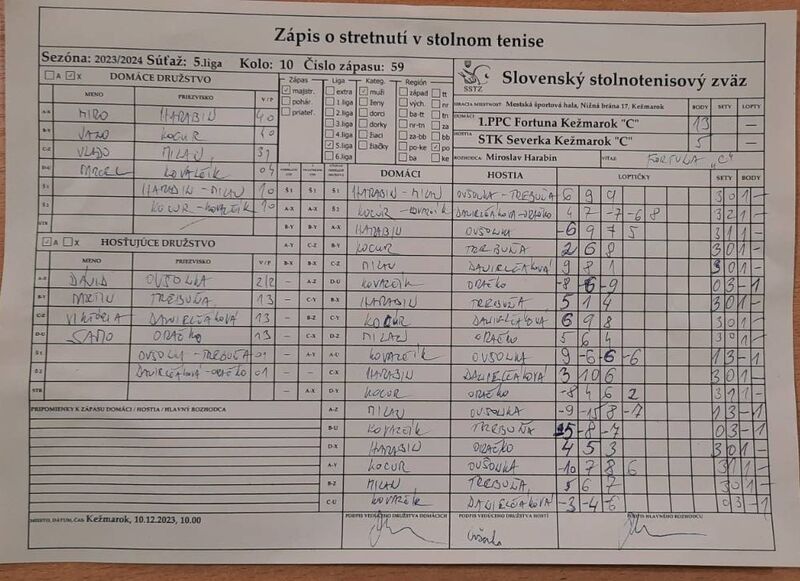 Zápis o stretnutí v stolnom tenise
Sezóna: 2023/2024 Súťaž: 5.liga Kolo: 10 Číslo zápasu: 59
A X DOMÁCE DRUŽSTVO
MENO PRIEZVISKO V / P
A-X MIRO HARABIN 4 0
B-Y JANO KOCUR 4 0
C-Z VLADO MILAN 3 1
D-U KOVALČÍK 0 4
Š 1 HARABIN - MILAN 1 0
Š 2 KOCUR - KOVALČÍK 1 0
STR
A X HOSŤUJÚCE DRUŽSTVO
MENO PRIEZVISKO V / P
A-X DÁVID OVSONKA 2/2
B-Y TREBUŇA 1 3
C-Z VIKTÓRIA DANIELČÁKOVÁ 1 3
D-U SAMO ORAČKO 1 3
Š 1 OVSONKA - TREBUŇA 0 1
Š 2 DANIELČÁKOVÁ - ORAČKO 0 1
STR
PRIPOMIENKY K ZÁPASU DOMÁCI / HOSTIA / HLAVNÝ ROZHODCA
Zápas Liga Kateg. Región
majstr. extra muži západ tt
pohár. 1.liga ženy vých. nr
priateľ. 2.liga dorci ba-tt tn
3.liga dorky nr-tn za
4.liga žiaci za-bb bb
5.liga žiačky po-ke po
6.liga ba ke
SSTZ
Slovenský stolnotenisový zväz
HRACIA MIESTNOSŤ Mestská športová hala, Nižná brána 17, Kežmarok BODY SETY LOPTY
DOMÁCI 1.PPC Fortuna Kežmarok "C" 13
HOSTIA STK Severka Kežmarok "C" 5
ROZHODCA: Miroslav Harabin VÍŤAZ FORTUNA „C"
DOMÁCI HOSTIA LOPTIČKY SETY BODY
Š 1 Š 1 HARABIN - MILAN OVSONKA - TREBUŇA 6 9 9 3 0 1 -
A-X Š 2 KOCUR - KOVALČÍK DANIELČÁKOVÁ - ORAČKO 4 7 -7 -6 8 3 2 1 -
B-Y A-X HARABIN OVSONKA -6 9 7 5 3 1 1 -
C-Z B-Y KOCUR TREBUŇA 2 6 8 3 0 1 -
B-X C-Z MILAN DANIELČÁKOVÁ 9 8 1 3 0 1 -
A-Z D-U KOVALČÍK ORAČKO -8 -6 -9 0 3 - 1
C-Y B-X HARABIN TREBUŇA 5 1 4 3 0 1 -
B-Z C-Y KOCUR DANIELČÁKOVÁ 6 9 8 3 0 1 -
C-X D-Z MILAN ORAČKO 5 6 4 3 0 1 -
A-Y A-U KOVALČÍK OVSONKA 9 -6 -6 -6 1 3 - 1
C-X HARABIN DANIELČÁKOVÁ 3 10 6 3 0 1 -
A-X D-Y KOCUR ORAČKO -8 4 6 2 3 1 1 -
A-Z MILAN OVSONKA -9 -15 8 -7 1 3 - 1
B-U KOVALČÍK TREBUŇA -8 -7 0 3 - 1
D-X HARABIN ORAČKO 4 5 3 3 0 1 -
A-Y KOCUR OVSONKA -10 7 8 6 3 1 1 -
B-Z MILAN TREBUŇA 5 6 7 3 0 1 -
C-U KOVALČÍK DANIELČÁKOVÁ -3 -4 -6 0 3 - 1
MIESTO, DÁTUM, ČAS Kežmarok, 10.12.2023, 10.00
PODPIS VEDÚCEHO DRUŽSTVA DOMÁCICH PODPIS VEDÚCEHO DRUŽSTVA HOSTÍ PODPIS HLAVNÉHO ROZHODCU